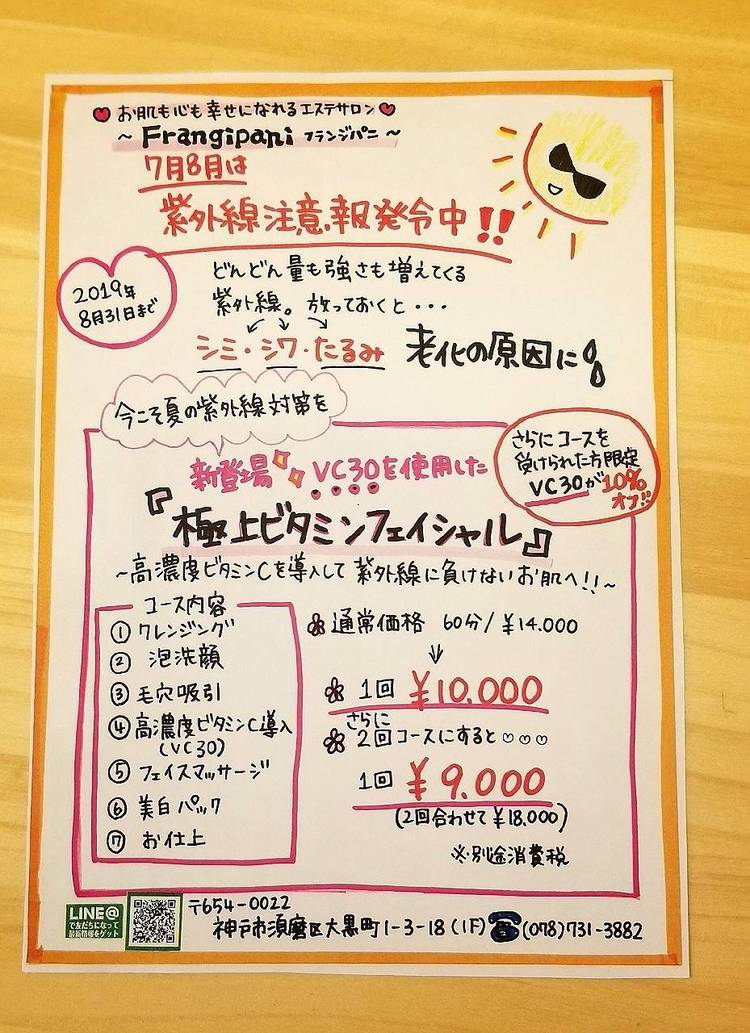 お肌も心も幸せになれるエステサロン
~ Frangipani フランジパニ ~
7月8月は
紫外線注意報発令中!!
2019年
8月31日まで
どんどん量も強さも増えてくる
紫外線。放っておくと・・・
シミ・シワ・たるみ 老化の原因に
今こそ夏の紫外線対策を
さらにコースを
受けられた方限定
VC30が10%
オフ!!
新登場 VC30を使用した
『極上ビタミンフェイシャル』
~高濃度ビタミンCを導入して紫外線に負けないお肌へ!!~
コース内容
① クレンジング
② 泡洗顔
③ 毛穴吸引
④ 高濃度ビタミンC導入
(VC30)
⑤ フェイスマッサージ
⑥ 美白パック
⑦ お仕上
通常価格 60分/¥14.000
1回 ¥10.000
さらに
2回コースにすると
1回 ¥9.000
(2回合わせて¥18.000)
※別途消費税
LINE@
で友だちになって
最新情報をゲット
〒654-0022
神戸市須磨区大黒町1-3-18(1F) ☎(078)731-3882